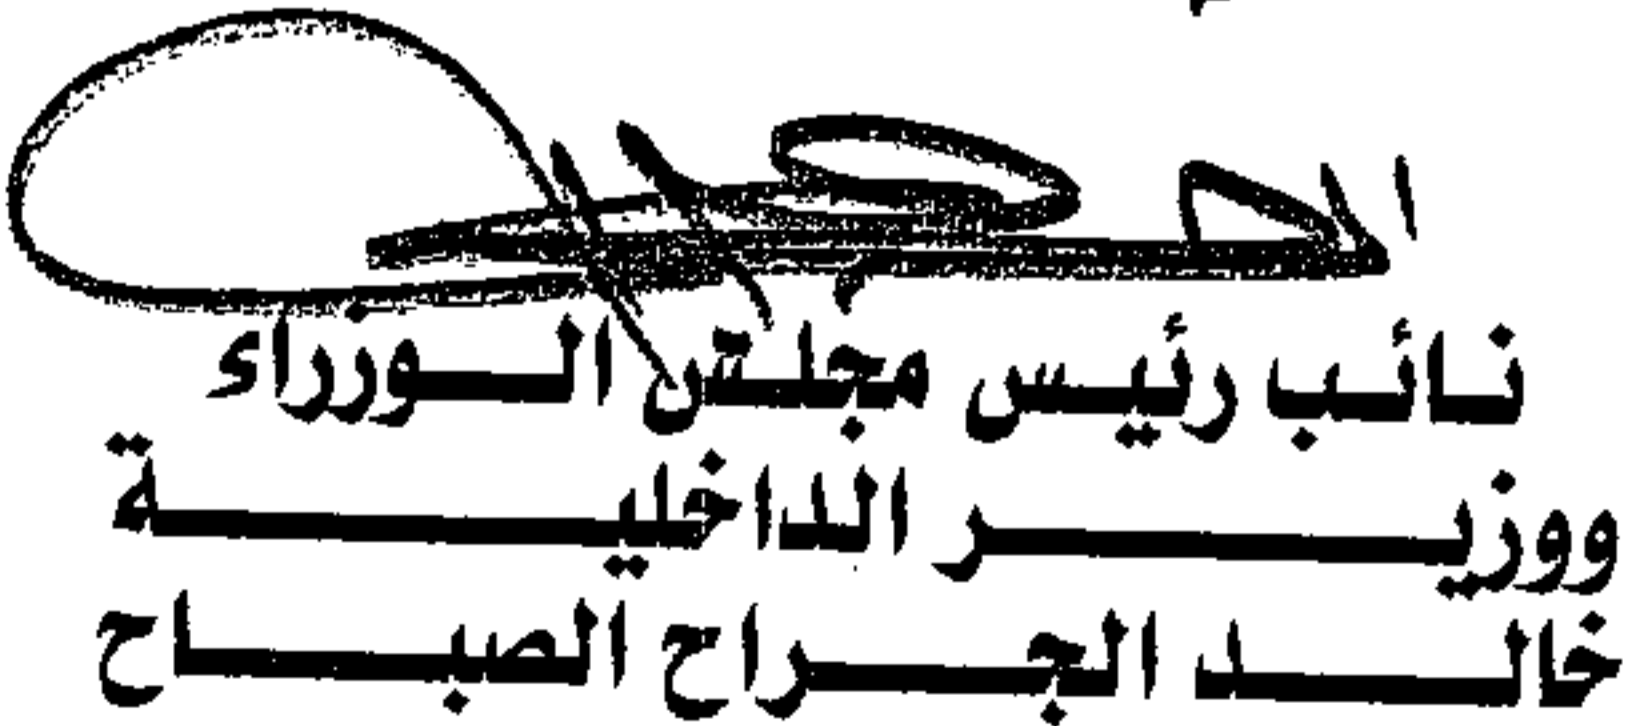 نائب رئيس مجلس الوزراء
ووزير الداخلية
خالد الجراح الصباح